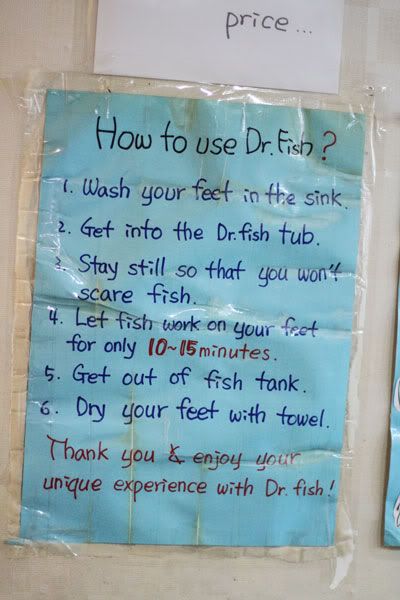 price...
How to use Dr. Fish?
1. Wash your feet in the sink.
2. Get into the Dr.fish tub.
3. Stay still so that you won't
scare fish.
4. Let fish work on your feet
for only 10~15 minutes.
5. Get out of fish tank.
6. Dry your feet with towel.
Thank you & enjoy your
unique experience with Dr. fish!